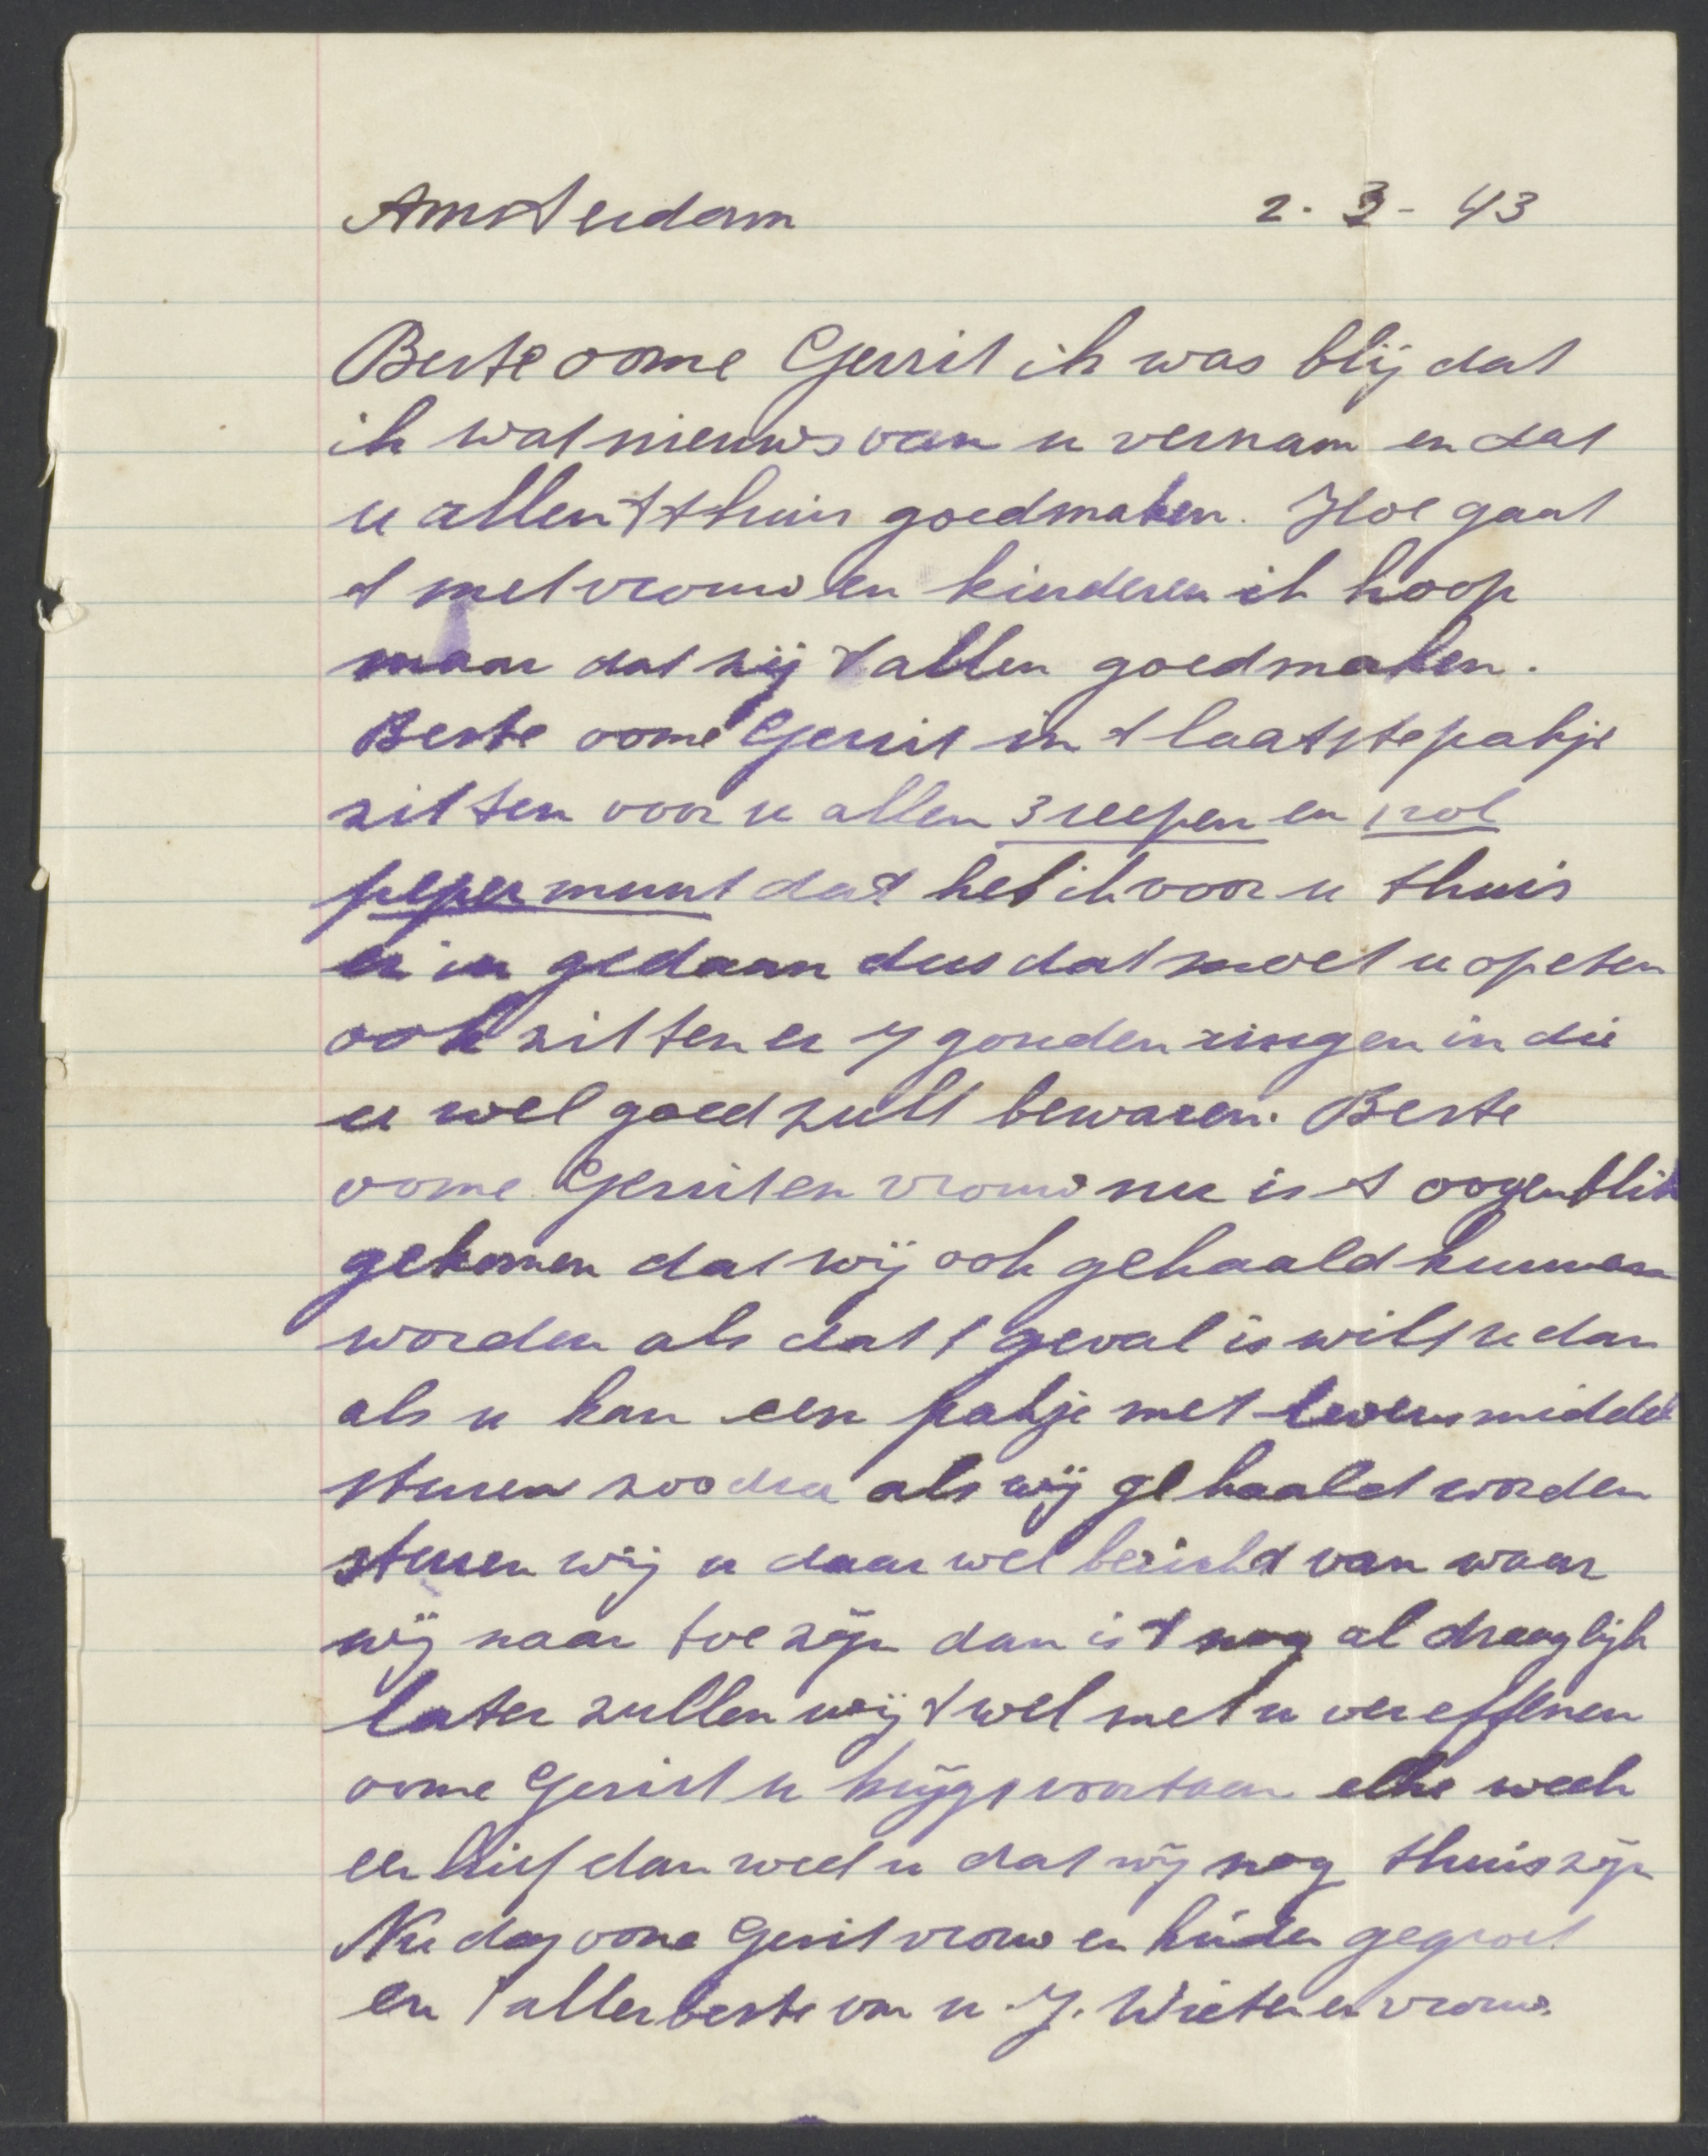 Amsterdam 2.3-43
Beste oome Gerrit ik was blij dat
ik wat nieuws van u vernam en dat
u allen 't thuis goedmaken. Hoe gaat
't met vrouw en kinderen ik hoop
maar dat zij 't allen goedmaken.
Beste oome Gerrit in 't laatste pakje
zitten voor u allen 3 reepen en 1 rol
pepermunt dat heb ik voor u thuis
er in gedaan dus dat moet u opeten
ook zitten er 7 gouden ringen in die
u wel goed zult bewaren. Beste
oome Gerrit en vrouw nu is 't oogenblik
gekomen dat wij ook gehaald kunnen
worden als dat 't geval is wilt u dan
als u kan een pakje met levensmiddel
sturen zoodra als wij gehaald worden
sturen wij u daar wel bericht van waar
wij naar toe zijn dan is 't nog al draaglijk
later zullen wij 't wel met u vereffenen
oome Gerrit u krijgt voortaan elke week
een brief dan weet u dat wij nog thuis zijn
Nu dag oome Gerrit vrouw en kinder gegroet
en 't allerbeste van u J. Wieter en vrouw.